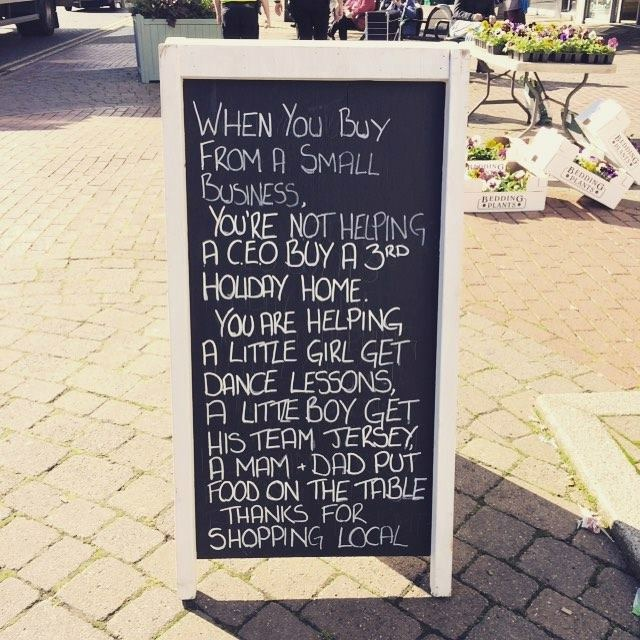 WHEN YOU BUY
FROM A SMALL
BUSINESS,
YOU'RE NOT HELPING
A CEO BUY A 3RD
HOLIDAY HOME.
YOU ARE HELPING
A LITTLE GIRL GET
DANCE LESSONS,
A LITTLE BOY GET
HIS TEAM JERSEY,
A MAM + DAD PUT
FOOD ON THE TABLE
THANKS FOR
SHOPPING LOCAL
BEDDING
PLANTS
BEDDING
PLANTS